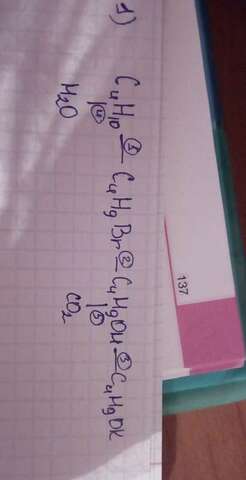 1) C₄H₁₀ —①— C₄H₉Br —②— C₄H₉OH —③— C₄H₉OK
|④ |⑤
H₂O CO₂
137